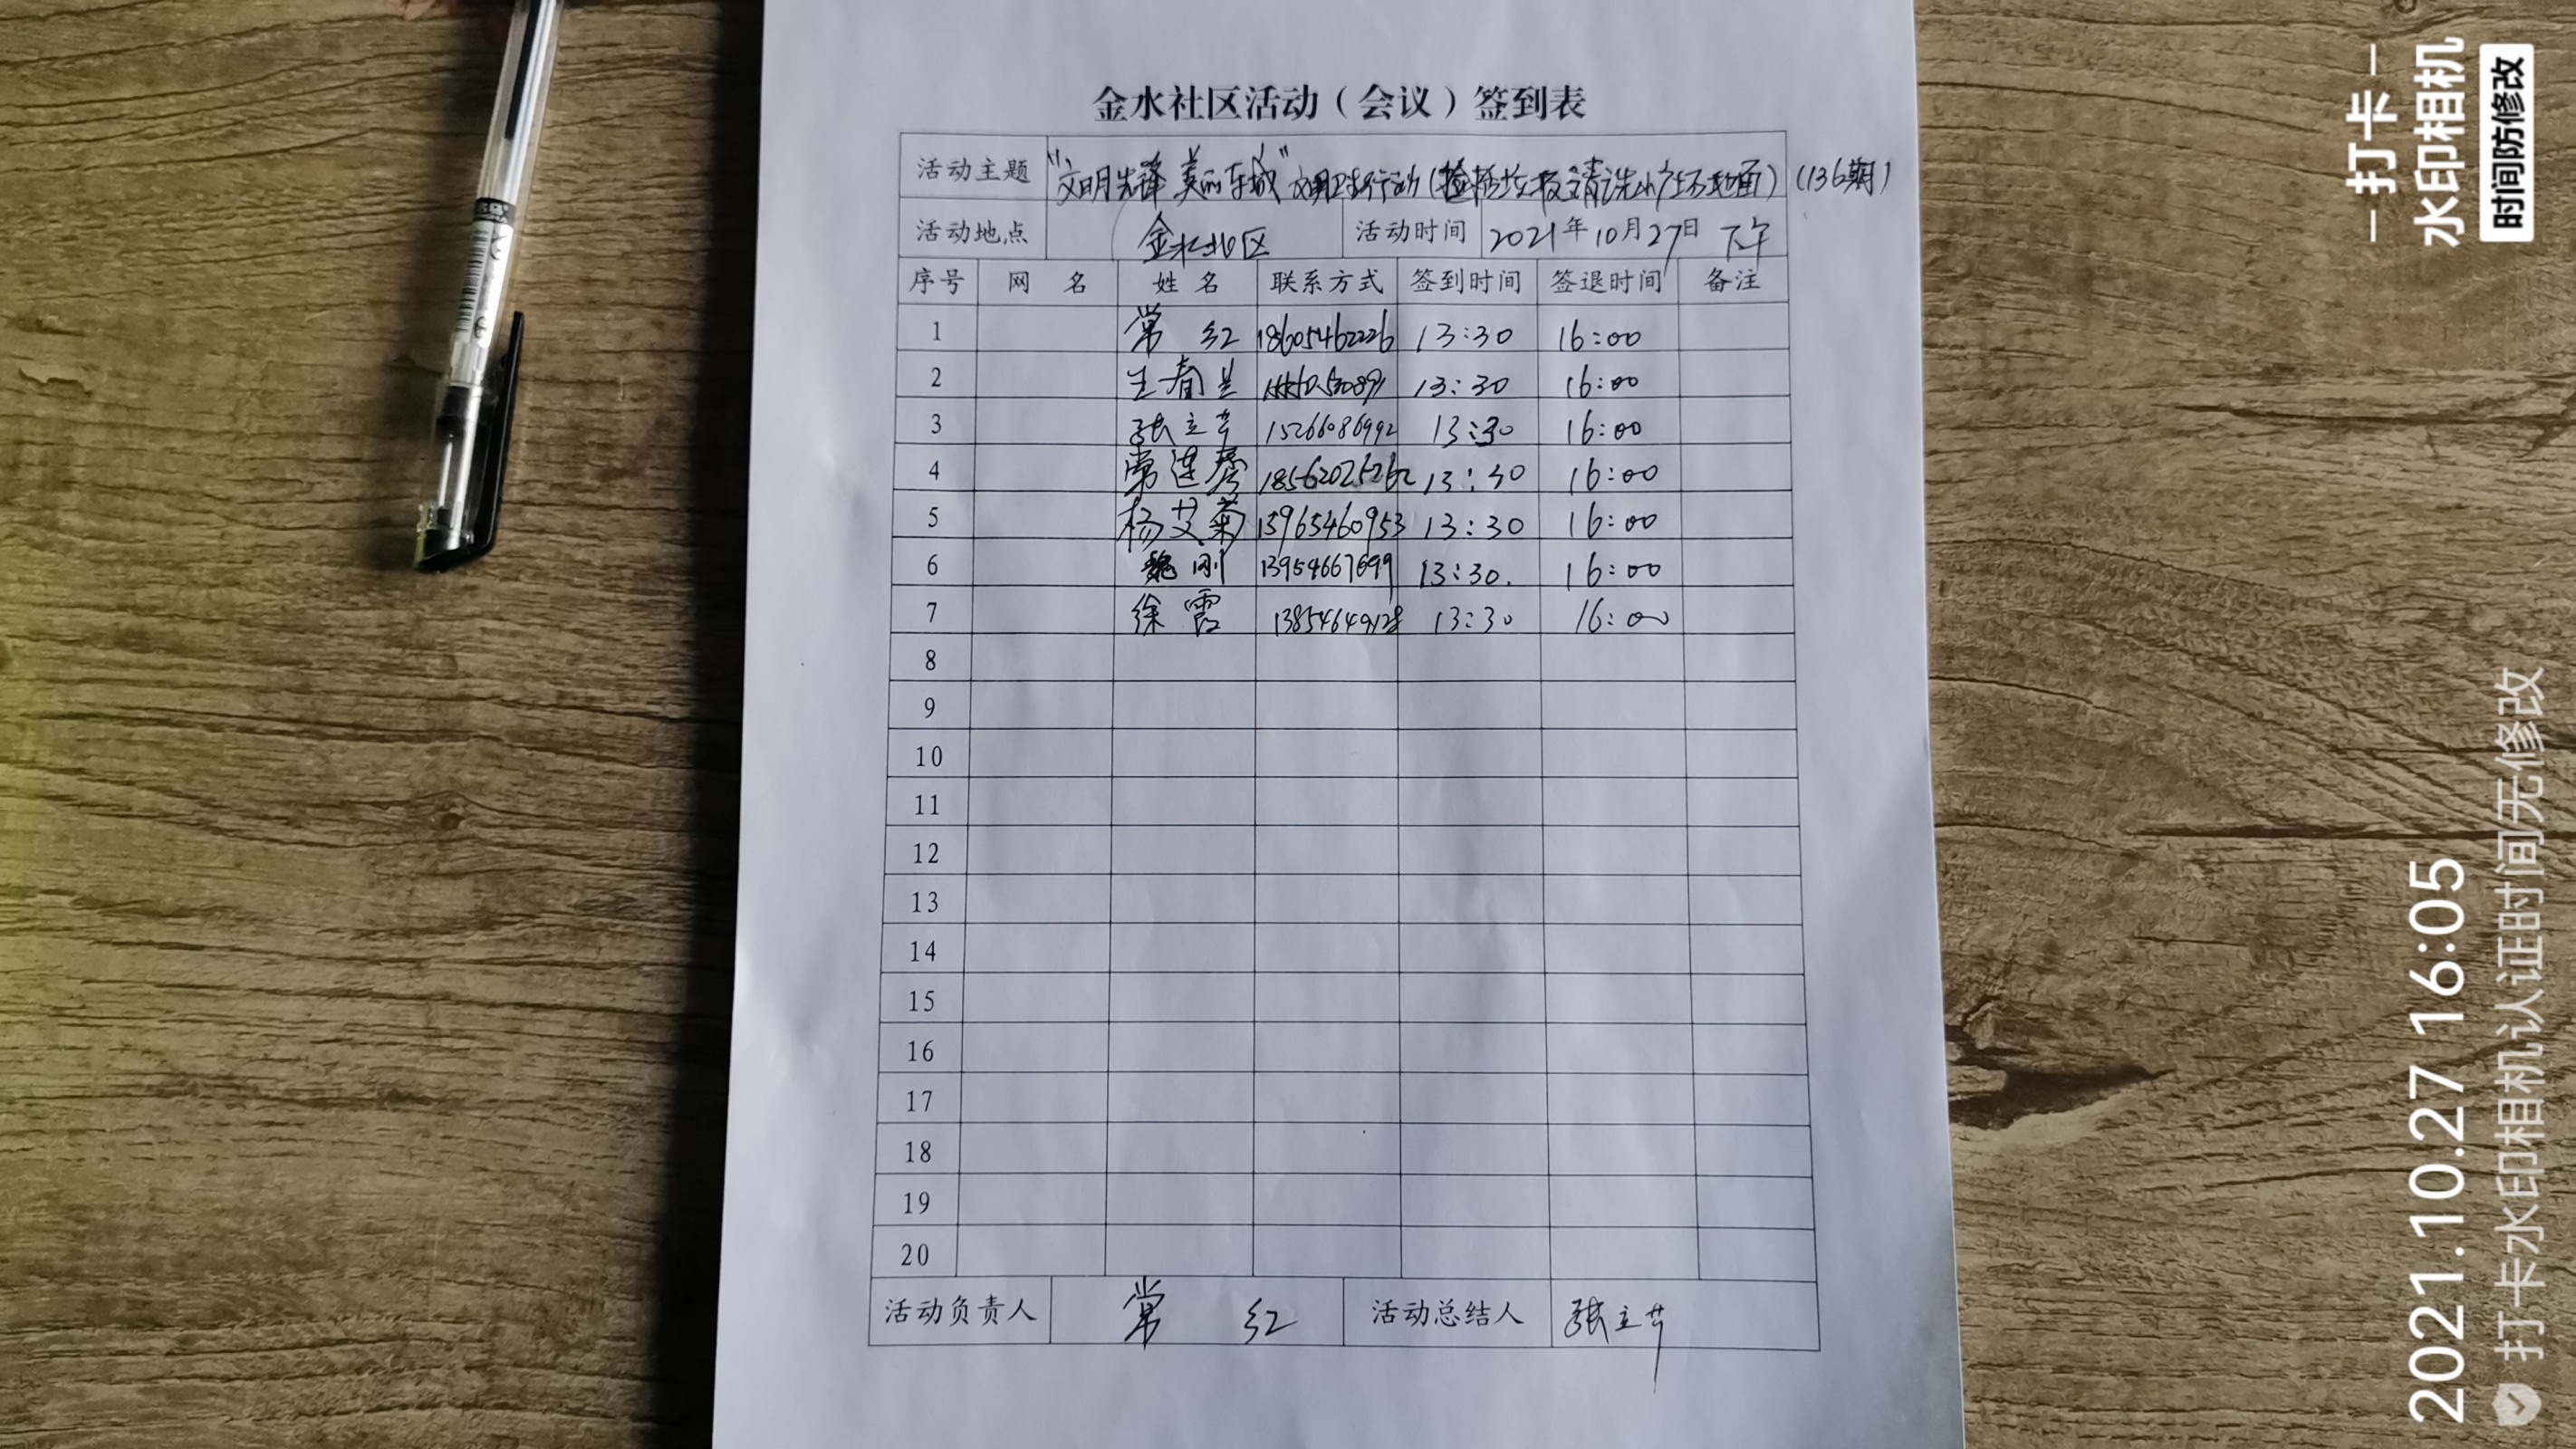 金水社区活动（会议）签到表
活动主题 "文明先锋 美丽东城"文明卫生行动（捡拾垃圾清洗小广场地面）（136期）
活动地点 金水北区 活动时间 2021年10月27日 下午
序号 网 名 姓 名 联系方式 签到时间 签退时间 备注
1 常 红 18605462226 13:30 16:00
2 13:30 16:00
3 张立 15266086992 13:30 16:00
4 常连 18562025262 13:30 16:00
5 杨艾菊 15965460953 13:30 16:00
6 魏刚 13954667699 13:30. 16:00
7 徐霞 13854649128 13:30 16:00
8
9
10
11
12
13
14
15
16
17
18
19
20
活动负责人 常 红 活动总结人 张立
打卡
水印相机
时间防修改
2021.10.27 16:05
打卡水印相机认证时间无修改